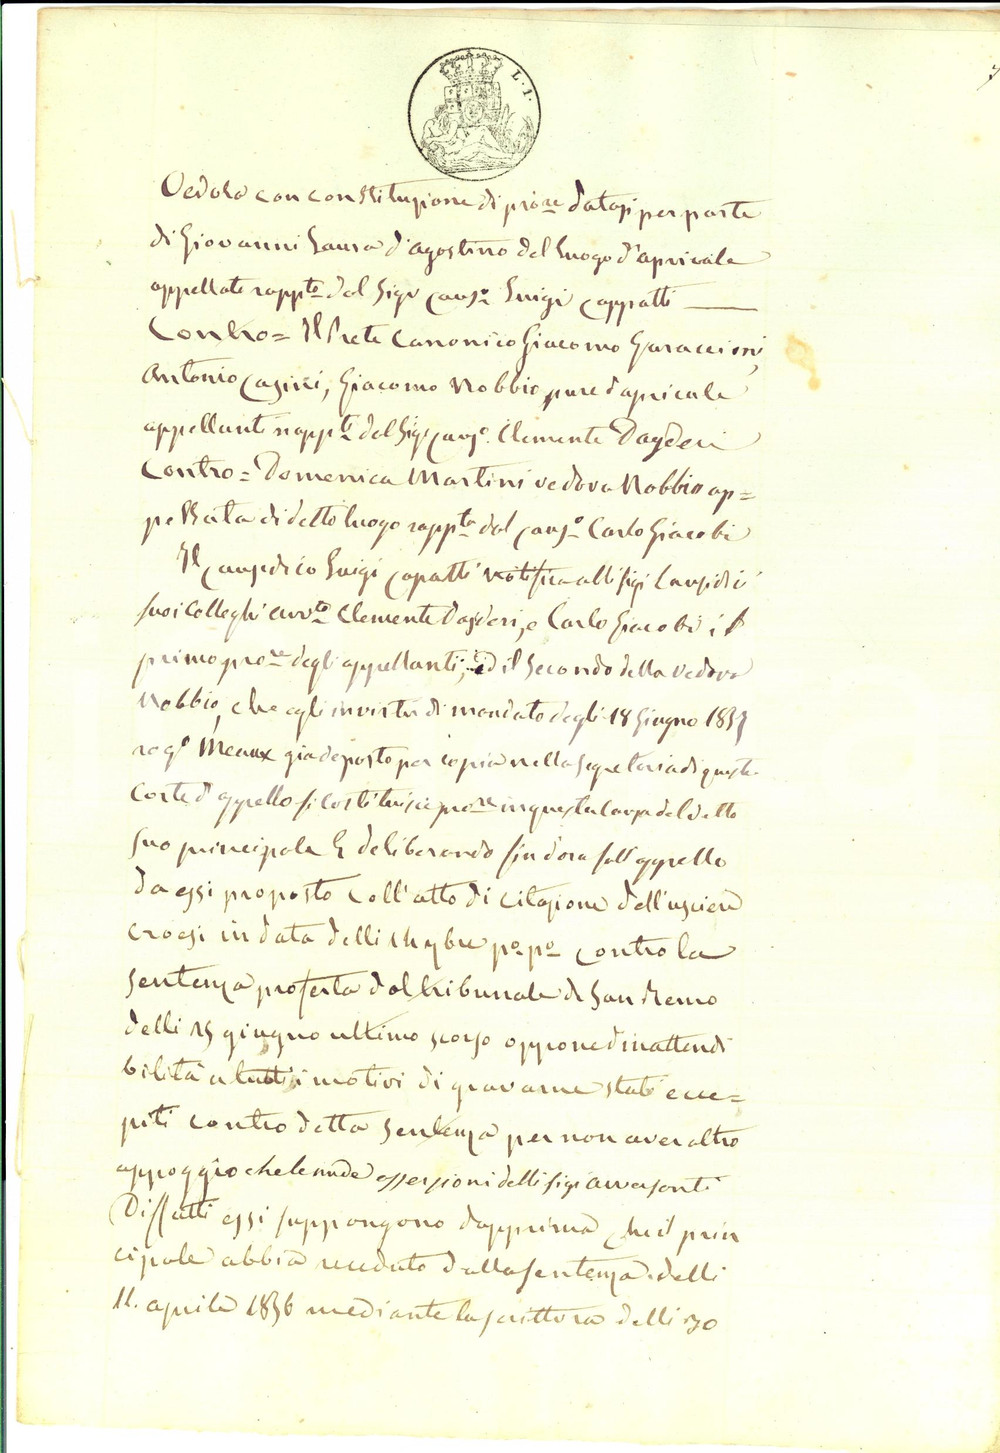 L. 1.
Cedola con constituzione di pro.re datasi per parte
di Giovanni Laura d'agostino del Luogo d'apricale
appellato rapp.to dal Sig.r caus.o Luigi Capatti
Contro = Il Prete Canonico Giacomo
Antonio Cassini, Giacomo Nobbio pure d'apricale
appellanti rapp.ti dal Sig.r caus.o Clemente Dagderi
Contro = Domenica Martini vedova Nobbio ap=
pellata di detto luogo rapp.ta dal caus.o Carlo Giacobi
Il causidico Luigi Capatti notifica alli sig.i Causidici
suoi colleghi avv.to Clemente Dagderi, e Carlo Giacobi il
primo pro.re degli appellanti, ed il Secondo della vedova
Nobbio, che egli in virtù di mandato degli 18 Giugno
rog.o Meaux già deposto per copia nella segretaria di questa
Corte d'appello si costituisce pro.re in questa causa del detto
suo principale E deliberando sin d'ora sull'appello
da essi proposto coll'atto di citazione dell'usciere
Croesi in data delli p.o p.o contro la
sentenza proferta dal tribunale di San Remo
delli 15 giugno ultimo scorso oppone d'inattendi
bilità a tutti i motivi di gravame stati ecce=
piti contro detta sentenza per non aver altro
appoggio che le nude asserzioni delli sig.i avversanti
Diffatti essi suppongono dapprima che il prin
cipale abbia receduto dalla sentenza delli
11. aprile 1836 mediante la scrittura delli 30